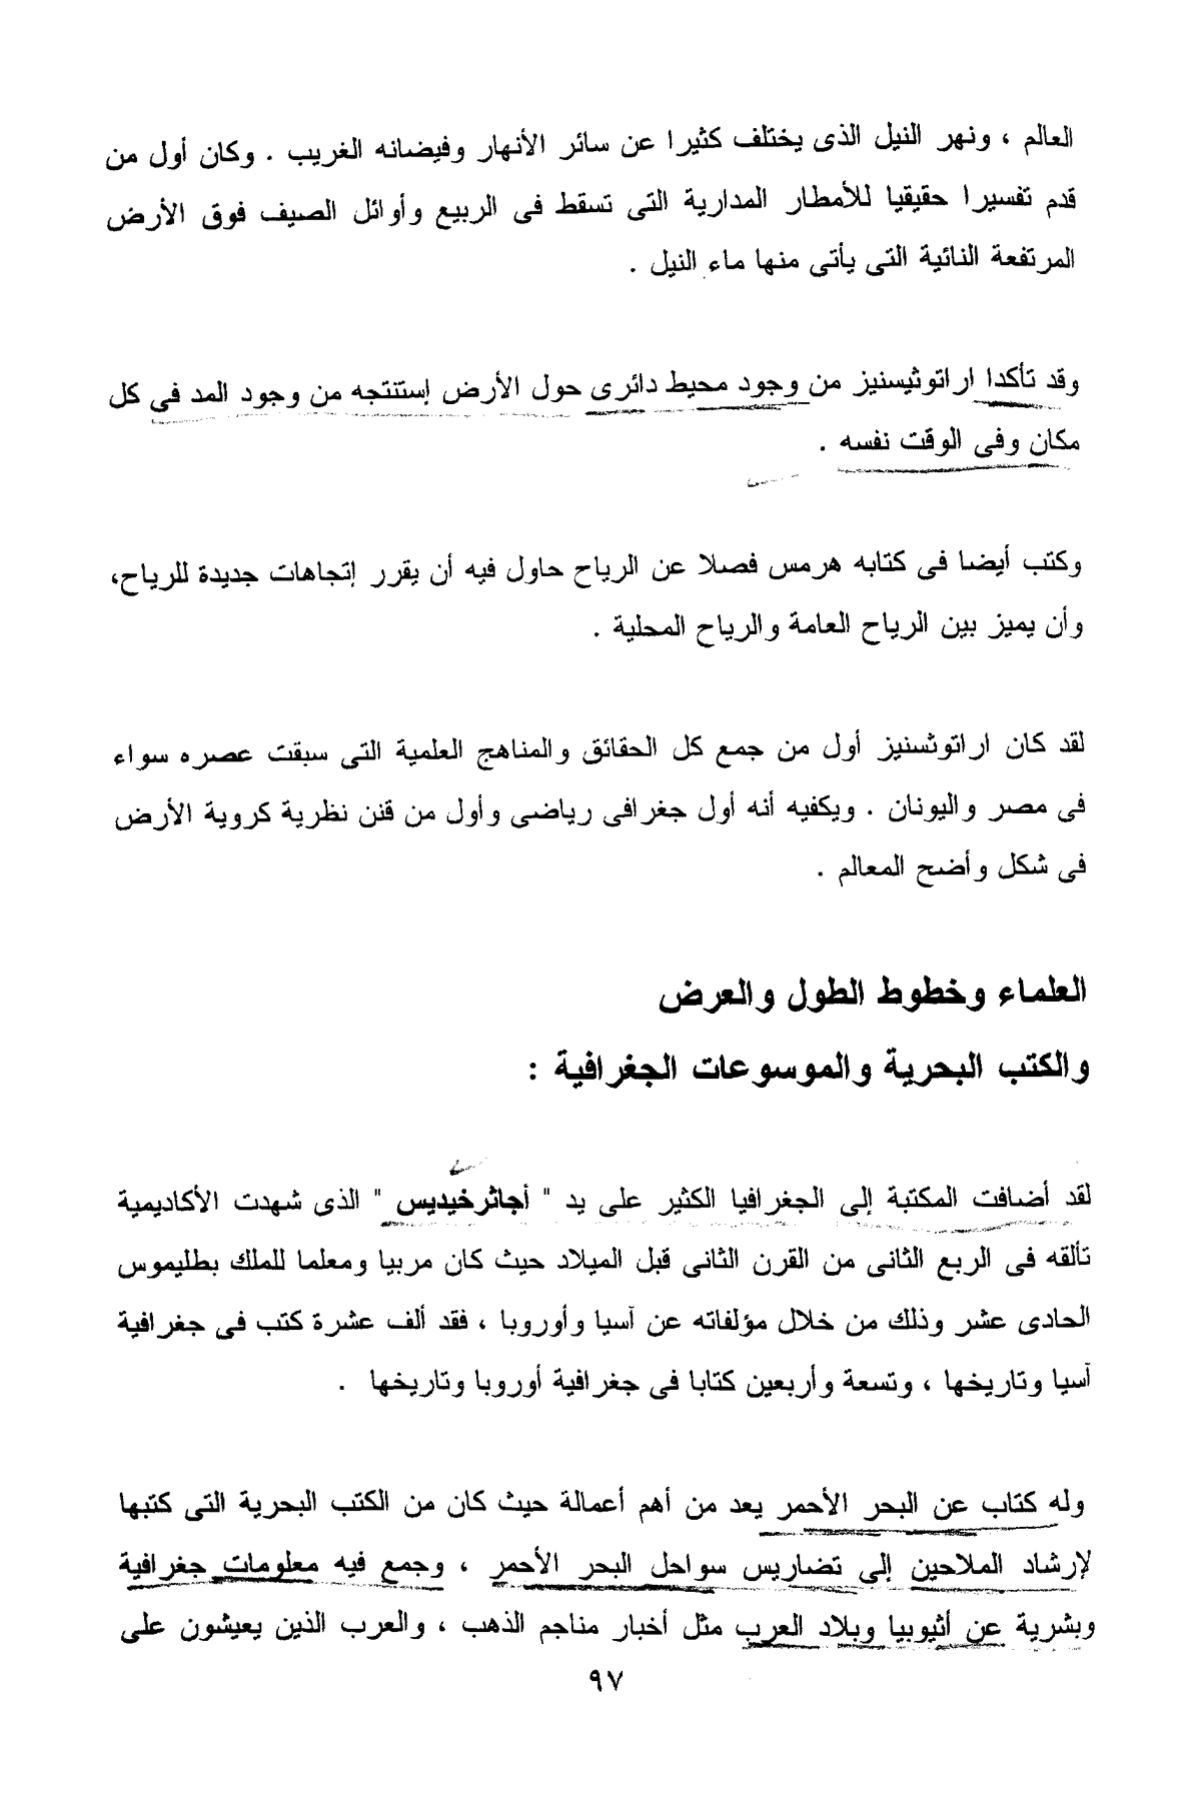 العالم ، ونهر النيل الذى يختلف كثيرا عن سائر الأنهار وفيضانه الغريب . وكان أول من
قدم تفسيرا حقيقيا للأمطار المدارية التى تسقط فى الربيع وأوائل الصيف فوق الأرض
المرتفعة النائية التى يأتى منها ماء النيل .
وقد تأكدا اراتوثيسنيز من وجود محيط دائرى حول الأرض إستنتجه من وجود المد فى كل
مكان وفى الوقت نفسه .
وكتب أيضا فى كتابه هرمس فصلا عن الرياح حاول فيه أن يقرر إتجاهات جديدة للرياح،
وأن يميز بين الرياح العامة والرياح المحلية .
لقد كان اراتوثسنيز أول من جمع كل الحقائق والمناهج العلمية التى سبقت عصره سواء
فى مصر واليونان . ويكفيه أنه أول جغرافى رياضى وأول من قنن نظرية كروية الأرض
فى شكل وأضح المعالم .
العلماء وخطوط الطول والعرض
والكتب البحرية والموسوعات الجغرافية :
لقد أضافت المكتبة إلى الجغرافيا الكثير على يد " أجاثرخيديس " الذى شهدت الأكاديمية
تألقه فى الربع الثانى من القرن الثانى قبل الميلاد حيث كان مربيا ومعلما للملك بطليموس
الحادى عشر وذلك من خلال مؤلفاته عن آسيا وأوروبا ، فقد ألف عشرة كتب فى جغرافية
آسيا وتاريخها ، وتسعة وأربعين كتابا فى جغرافية أوروبا وتاريخها .
وله كتاب عن البحر الأحمر يعد من أهم أعمالة حيث كان من الكتب البحرية التى كتبها
لإرشاد الملاحين إلى تضاريس سواحل البحر الأحمر ، وجمع فيه معلومات جغرافية
وبشرية عن أثيوبيا وبلاد العرب مثل أخبار مناجم الذهب ، والعرب الذين يعيشون على
٩٧